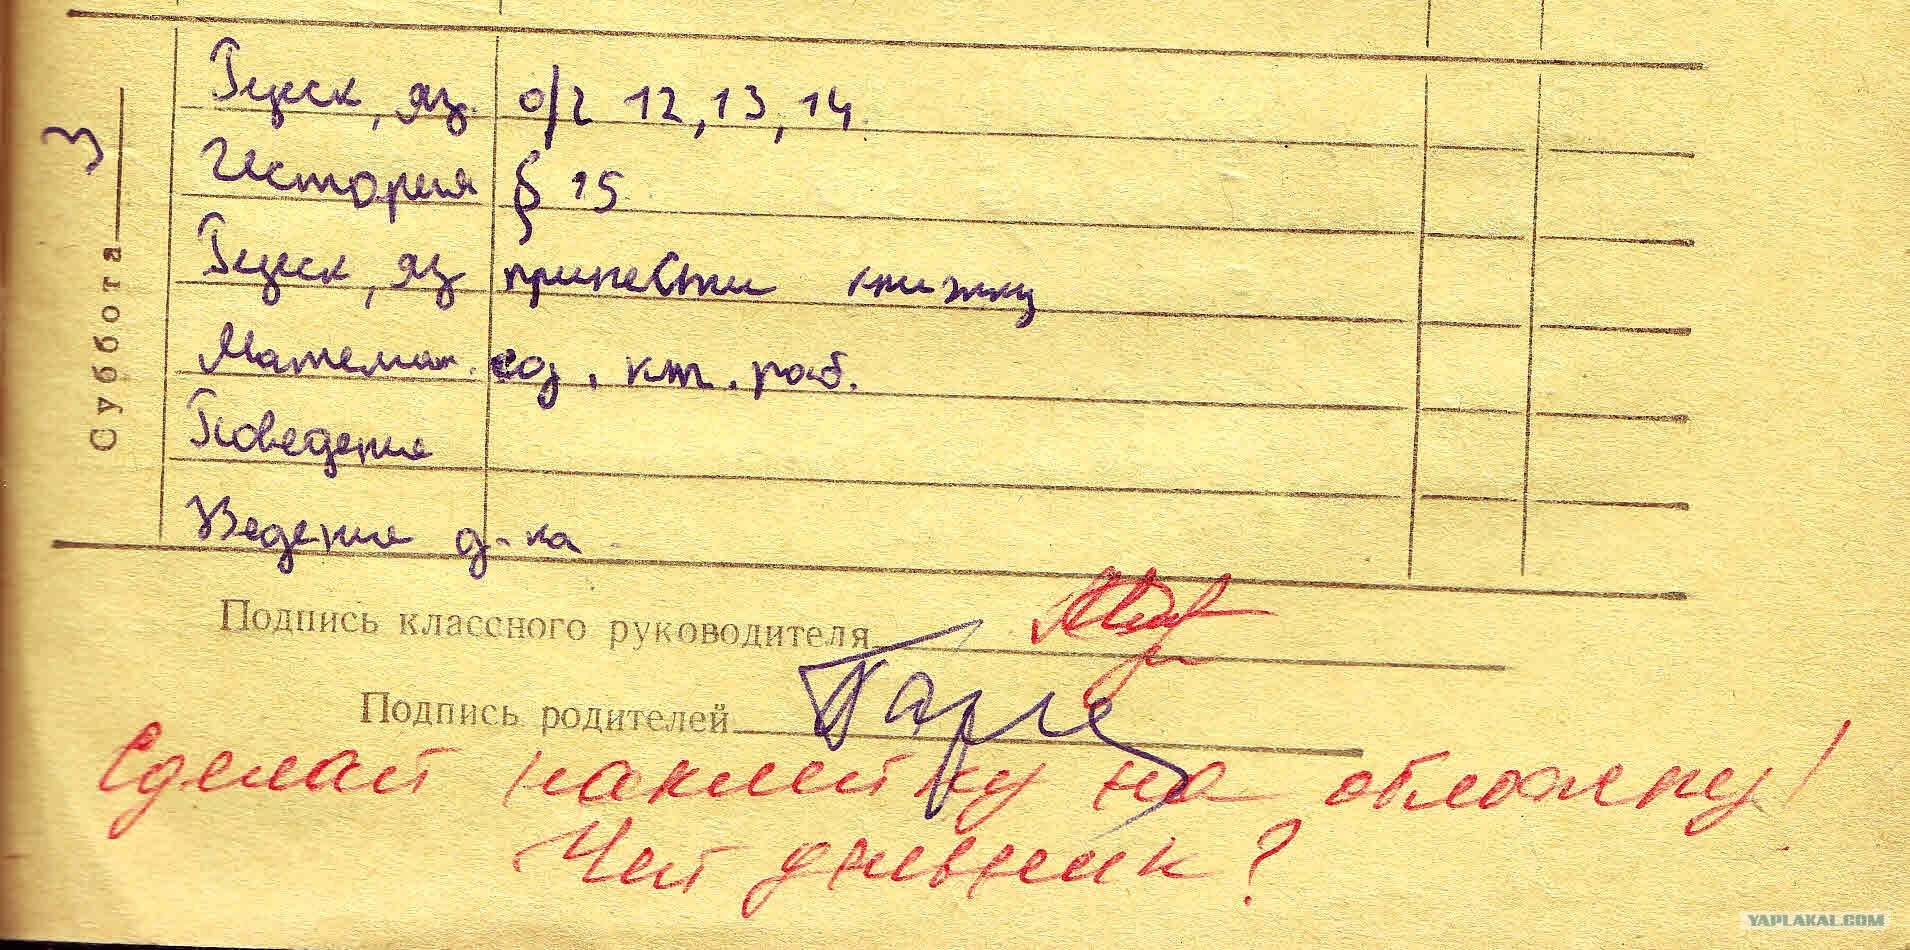 Суббота 3
Русск, яз. о/г 12, 13, 14
История § 15
Русск, яз принести книжку
Матема. соз. кт. раб.
Поведение
Ведение д-ка
Подпись классного руководителя
Подпись родителей
Сделай наклейку на обложку!
Чей дневник?
YAPLAKAL.COM